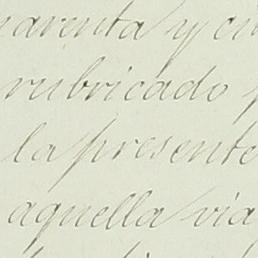 narenta y cu
rubricado p
la presente
aquella via